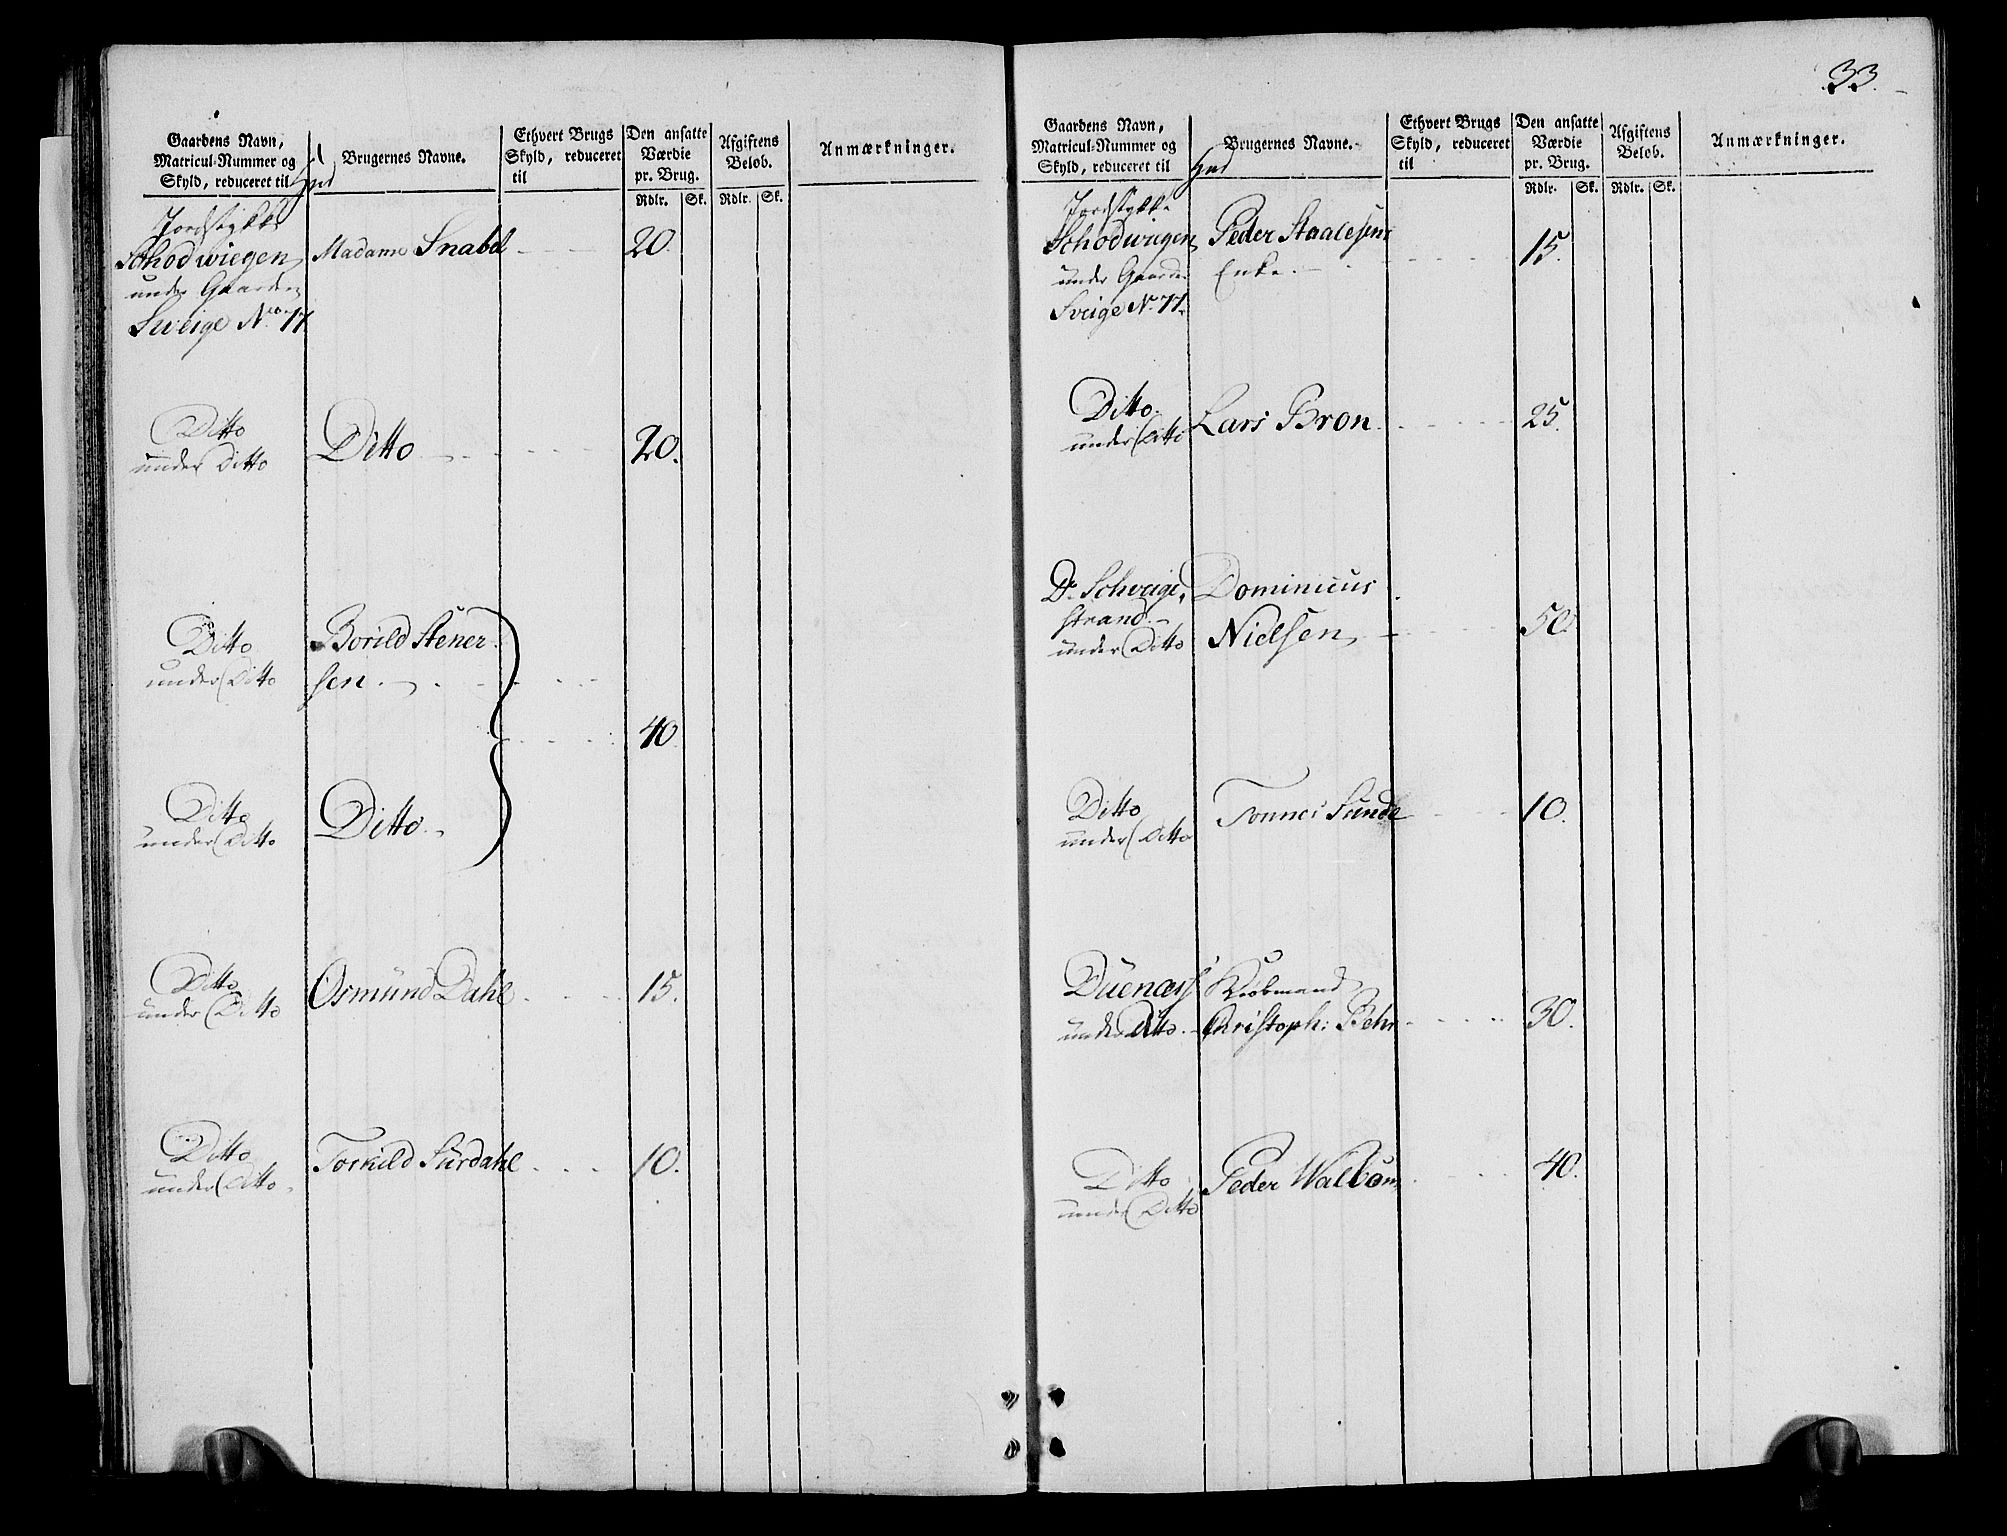 Gaardens Navn,
Matricul-Nummer og
Skyld, reduceret til
Hud
Brugernes Navne.
Ethvert Brugs
Skyld, reduceret
til
Den ansatte
Værdie
pr. Brug.
Rdlr. Sk.
Afgiftens
Beløb.
Rdlr. Sk.
Anmærkninger.
Jordstykke
Schodwiegen Madame Snabel 20.
under Gaarden
Sweige No. 17
Ditto
under Ditto Ditto 20.
Ditto Borild Stener-
under Ditto sen.
40.
Ditto
under Ditto Ditto.
Ditto
under Ditto Osmund Dahl 15.
Ditto
under Ditto Torkild Surdahl 10.
33.
Gaardens Navn,
Matricul-Nummer og
Skyld, reduceret til
Hud
Brugernes Navne.
Ethvert Brugs
Skyld, reduceret
til
Den ansatte
Værdie
pr. Brug.
Rdlr. Sk.
Afgiftens
Beløb.
Rdlr. Sk.
Anmærkninger.
Jordstykke
Schodwiegen Peder Staalesens 15.
under Gaarden Enke.
Sveige No. 17.
Ditto.
under Ditto Lars Bron 25.
Do. Schveige- Dominicus
strand.
under Ditto Nielsen 50.
Ditto
under Ditto Tonnes Sunde 10.
Duenæss Kiøbmand
under Ditto. Christoph: Behr 30.
Ditto
under Ditto Peder Walbom 40.